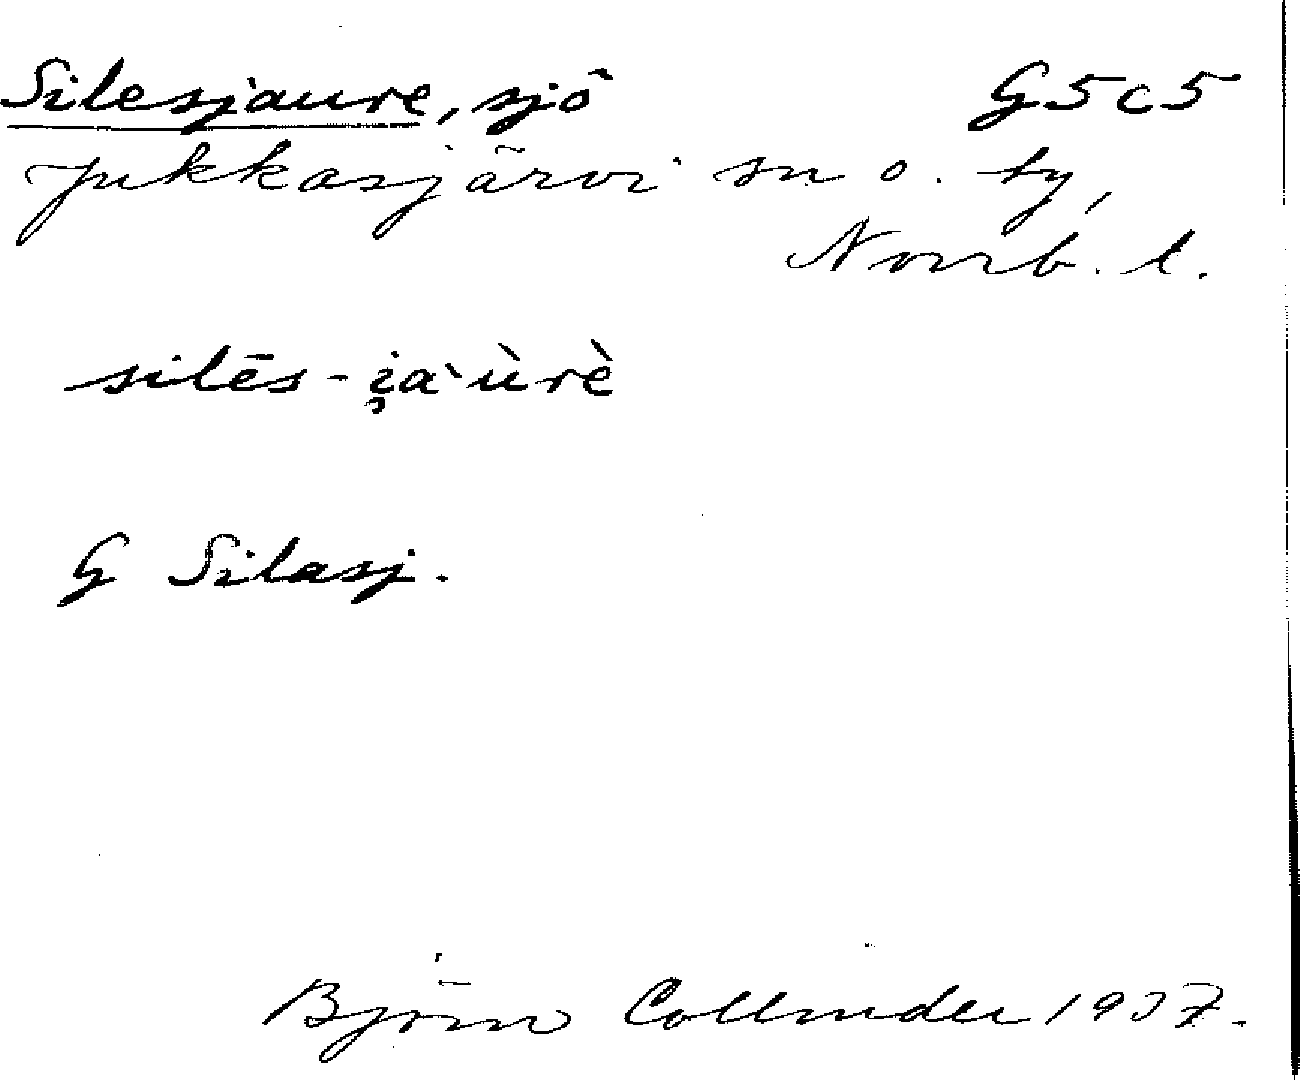 Silesjaure, sjö G5c5
Jukkasjärvi sn o. ty,
Norrb. l.
silēs-i̯a`ùrè
G Silasj.
Björn Collinder 1937.